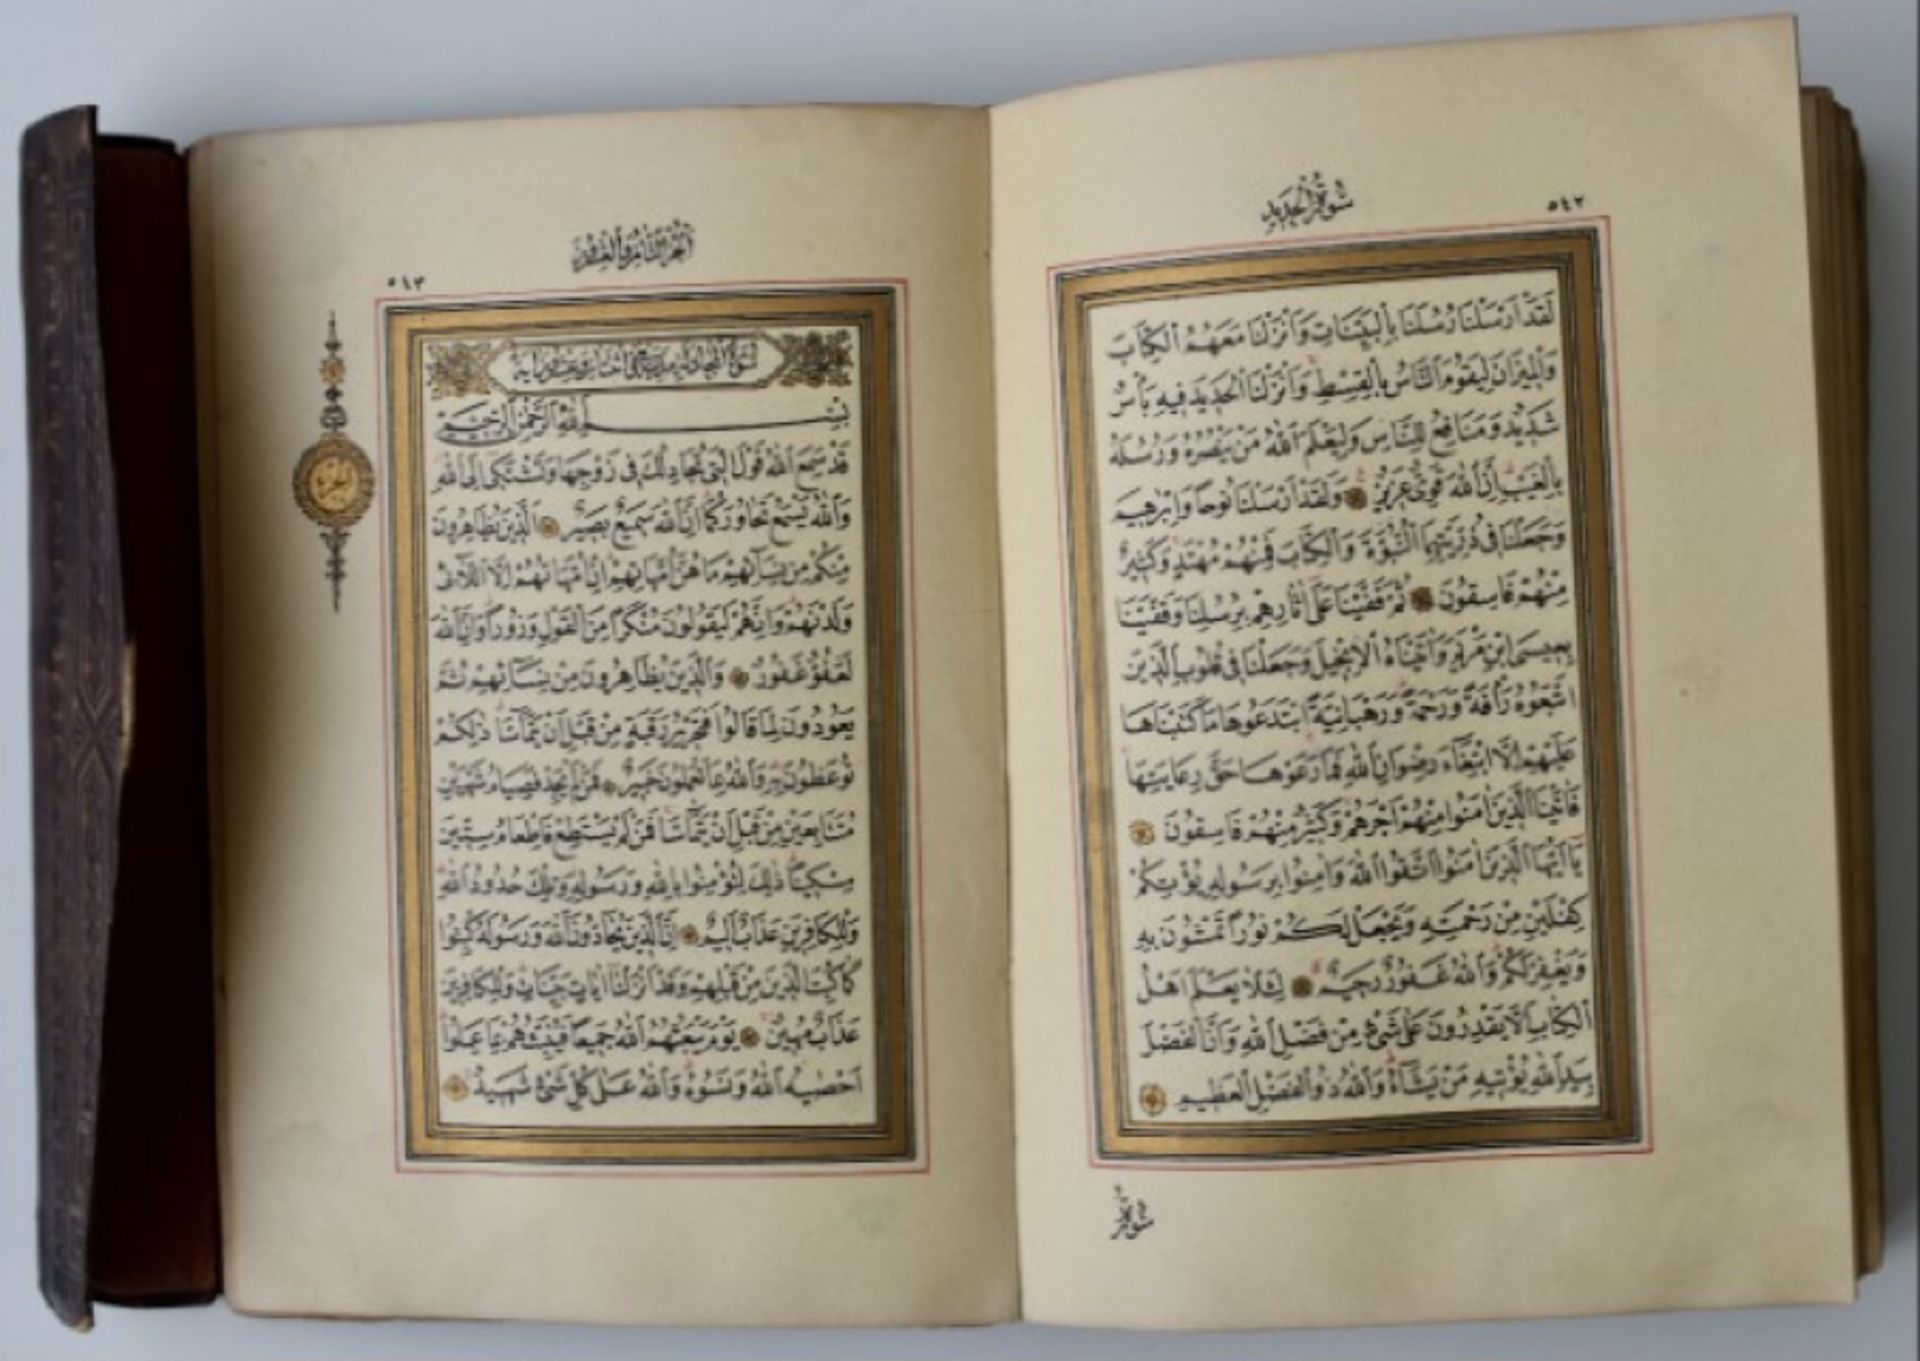 سورة الحديد
٥٤٢
لَقَدْ اَرْسَلْنَا رُسُلَنَا بِالْبَيِّنَاتِ وَاَنْزَلْنَا مَعَهُمُ الْكِتَابَ
وَالْمِيزَانَ لِيَقُومَ النَّاسُ بِالْقِسْطِ وَاَنْزَلْنَا الْحَدِيدَ فِيهِ بَأْسٌ
شَدِيدٌ وَمَنَافِعُ لِلنَّاسِ وَلِيَعْلَمَ اللّٰهُ مَنْ يَنْصُرُهُ وَرُسُلَهُ
بِالْغَيْبِ اِنَّ اللّٰهَ قَوِىٌّ عَزِيزٌ وَلَقَدْ اَرْسَلْنَا نُوحًا وَاِبْرٰهِيمَ
وَجَعَلْنَا فِى ذُرِّيَّتِهِمَا النُّبُوَّةَ وَالْكِتَابَ فَمِنْهُمْ مُهْتَدٍ وَكَثِيرٌ
مِنْهُمْ فَاسِقُونَ ثُمَّ قَفَّيْنَا عَلٰى اٰثَارِهِمْ بِرُسُلِنَا وَقَفَّيْنَا
بِعِيسَى ابْنِ مَرْيَمَ وَاٰتَيْنَاهُ الْاِنْجِيلَ وَجَعَلْنَا فِى قُلُوبِ الَّذِينَ
اتَّبَعُوهُ رَأْفَةً وَرَحْمَةً وَرَهْبَانِيَّةً ابْتَدَعُوهَا مَا كَتَبْنَاهَا
عَلَيْهِمْ اِلَّا ابْتِغَاءَ رِضْوَانِ اللّٰهِ فَمَا رَعَوْهَا حَقَّ رِعَايَتِهَا
فَاٰتَيْنَا الَّذِينَ اٰمَنُوا مِنْهُمْ اَجْرَهُمْ وَكَثِيرٌ مِنْهُمْ فَاسِقُونَ
يَا اَيُّهَا الَّذِينَ اٰمَنُوا اتَّقُوا اللّٰهَ وَاٰمِنُوا بِرَسُولِهِ يُؤْتِكُمْ
كِفْلَيْنِ مِنْ رَحْمَتِهِ وَيَجْعَلْ لَكُمْ نُورًا تَمْشُونَ بِهِ
وَيَغْفِرْ لَكُمْ وَاللّٰهُ غَفُورٌ رَحِيمٌ لِئَلَّا يَعْلَمَ اَهْلُ
الْكِتَابِ اَلَّا يَقْدِرُونَ عَلٰى شَىْءٍ مِنْ فَضْلِ اللّٰهِ وَاَنَّ الْفَضْلَ
بِيَدِ اللّٰهِ يُؤْتِيهِ مَنْ يَشَاءُ وَاللّٰهُ ذُو الْفَضْلِ الْعَظِيمِ
سورة
الجزء الثامن والعشرون
٥٤٣
سورة المجادلة مدنية وهى اثنتان وعشرون اية
بِسْمِ اللّٰهِ الرَّحْمٰنِ الرَّحِيمِ
قَدْ سَمِعَ اللّٰهُ قَوْلَ الَّتِى تُجَادِلُكَ فِى زَوْجِهَا وَتَشْتَكِى اِلَى اللّٰهِ
وَاللّٰهُ يَسْمَعُ تَحَاوُرَكُمَا اِنَّ اللّٰهَ سَمِيعٌ بَصِيرٌ اَلَّذِينَ يُظَاهِرُونَ
مِنْكُمْ مِنْ نِسَائِهِمْ مَا هُنَّ اُمَّهَاتِهِمْ اِنْ اُمَّهَاتُهُمْ اِلَّا اللَّائِى
وَلَدْنَهُمْ وَاِنَّهُمْ لَيَقُولُونَ مُنْكَرًا مِنَ الْقَوْلِ وَزُورًا وَاِنَّ اللّٰهَ
لَعَفُوٌّ غَفُورٌ وَالَّذِينَ يُظَاهِرُونَ مِنْ نِسَائِهِمْ ثُمَّ
يَعُودُونَ لِمَا قَالُوا فَتَحْرِيرُ رَقَبَةٍ مِنْ قَبْلِ اَنْ يَتَمَاسَّا ذٰلِكُمْ
تُوعَظُونَ بِهِ وَاللّٰهُ بِمَا تَعْمَلُونَ خَبِيرٌ فَمَنْ لَمْ يَجِدْ فَصِيَامُ شَهْرَيْنِ
مُتَتَابِعَيْنِ مِنْ قَبْلِ اَنْ يَتَمَاسَّا فَمَنْ لَمْ يَسْتَطِعْ فَاِطْعَامُ سِتِّينَ
مِسْكِينًا ذٰلِكَ لِتُؤْمِنُوا بِاللّٰهِ وَرَسُولِهِ وَتِلْكَ حُدُودُ اللّٰهِ
وَلِلْكَافِرِينَ عَذَابٌ اَلِيمٌ اِنَّ الَّذِينَ يُحَادُّونَ اللّٰهَ وَرَسُولَهُ كُبِتُوا
كَمَا كُبِتَ الَّذِينَ مِنْ قَبْلِهِمْ وَقَدْ اَنْزَلْنَا اٰيَاتٍ بَيِّنَاتٍ وَلِلْكَافِرِينَ
عَذَابٌ مُهِينٌ يَوْمَ يَبْعَثُهُمُ اللّٰهُ جَمِيعًا فَيُنَبِّئُهُمْ بِمَا عَمِلُوا
اَحْصٰيهُ اللّٰهُ وَنَسُوهُ وَاللّٰهُ عَلٰى كُلِّ شَىْءٍ شَهِيدٌ
الجزء